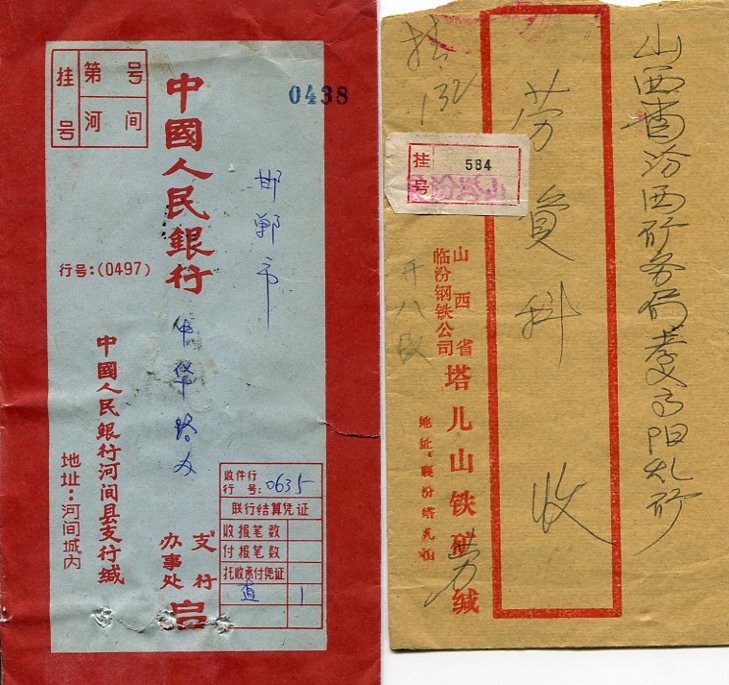 挂号
第 号
河 间
0438
中國人民銀行
邯郸市
行号:(0497)
中华路办
中國人民銀行河间县支行缄
地址:河间城内
支行
办事处
启
收件行
行 号: 0635
联行结算凭证
收报笔数
付报笔数
托收承付凭证
1
山西省汾西矿务局孝义高阳
挂
132
劳资科 收
挂号
584
开八
山西省
临汾钢铁公司
塔儿山铁矿 缄
劳
地址:襄汾塔儿山